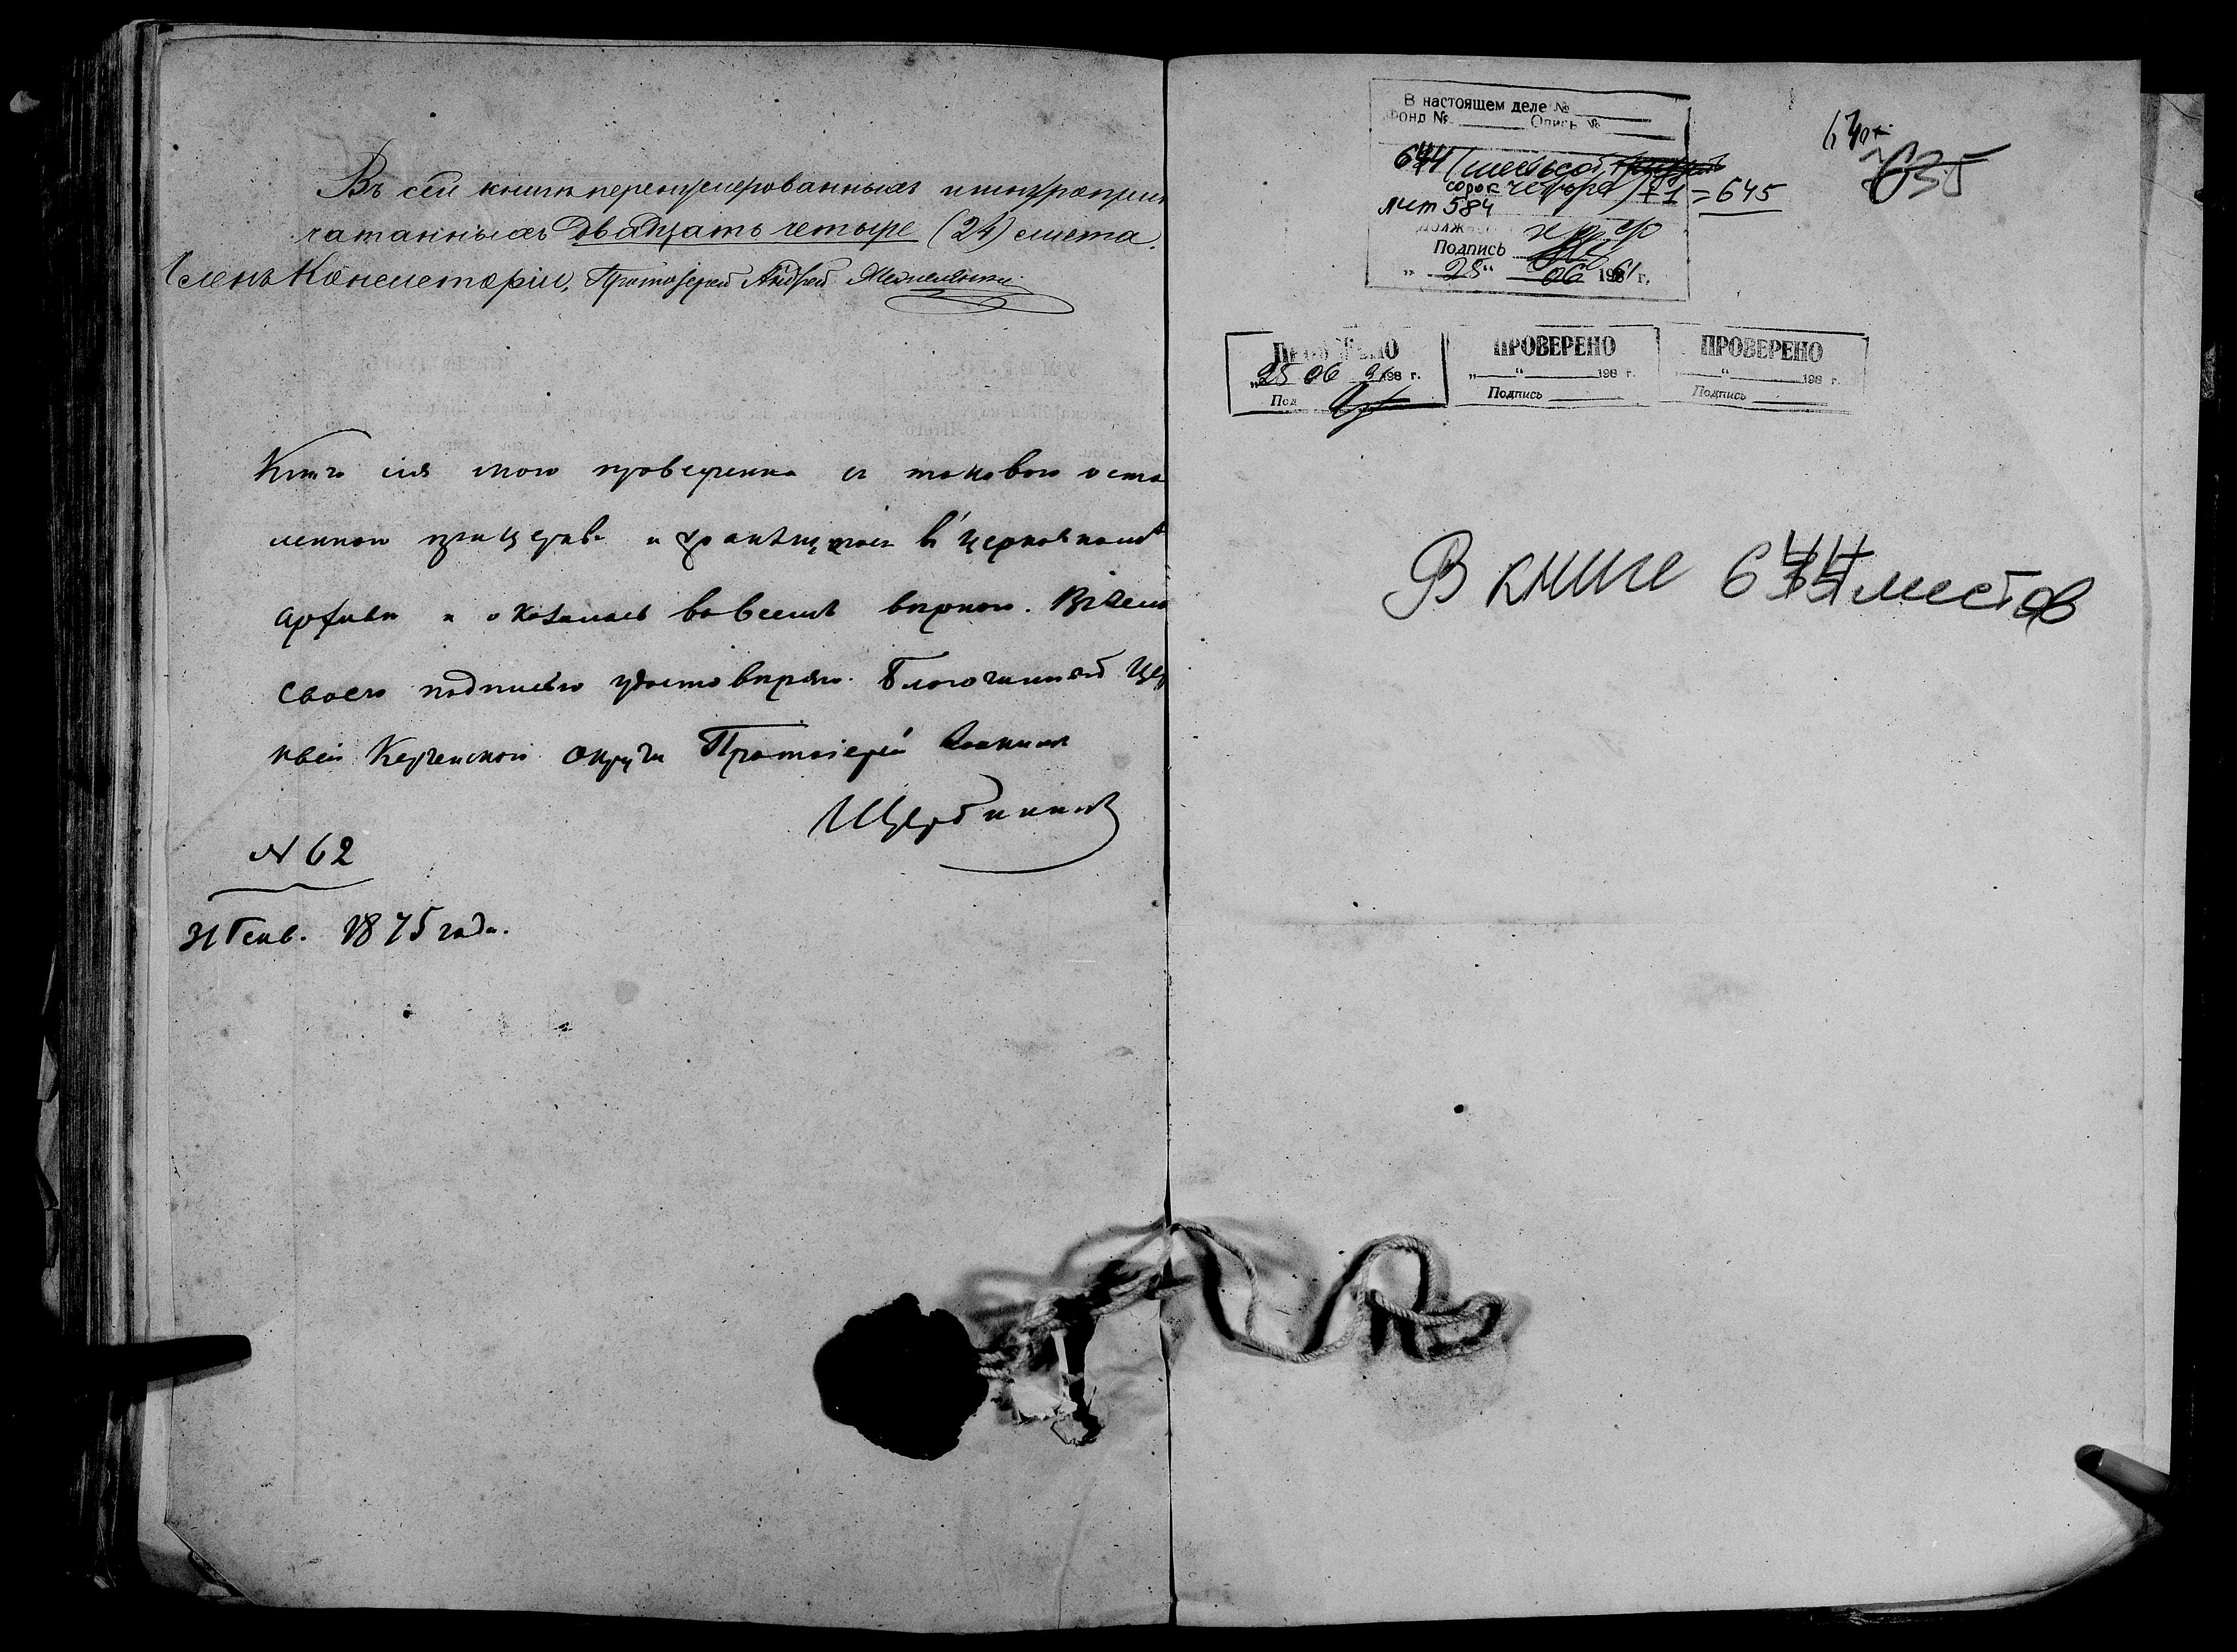 Въ сей книгѣ перенумерованныхъ и шнуроприпе
чатанныхъ двадцать четыре (24) листа.
Членъ Консисторіи, Протоіерей Андрей
Книга сія мною провѣренна съ таковою остав
ленною при церкви и хранящеюся въ церковномъ
архивѣ и оказалась во всемъ вѣрною. Въ чемъ
своею подписью удостовѣряю. Благочинный Цер
квей Керченскаго округа Протоіерей Іоаннъ
Щербининъ
№ 62
31 Генв. 1875 года.
В настоящем деле №
Фонд № Опись №
644 (шестьсот
сорок четыре) + 1 = 645
лист 584
Должн
Подпись
„25“ 06 1981 г.
635
ПРОВЕРЕНО
„25 06 91 198 г.
Под
ПРОВЕРЕНО
„ “ 198 г.
Подпись
ПРОВЕРЕНО
„ “ 198 г.
Подпись
В книге 644 листов